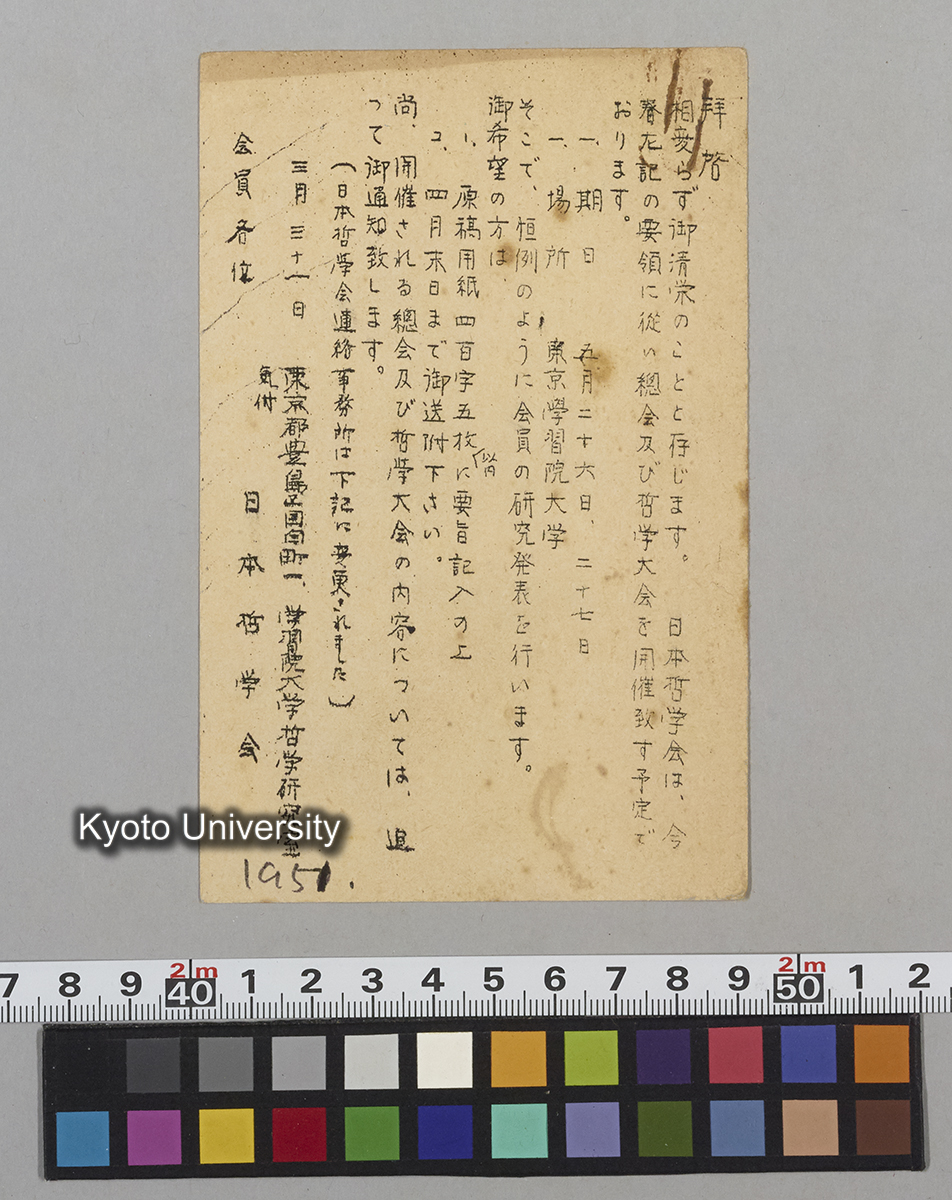 拝啓
相変らず御清栄のことと存じます。 日本哲学会は、今
春左記の要領に従い總会及び哲学大会を開催致す予定で
おります。
一、期 日 五月二十六日、二十七日
一、場 所 東京學習院大学
そこで、恒例のように会員の研究発表を行います。
御希望の方は、
1、原稿用紙四百字五枚以内に要旨記入の上
2、四月末日まで御送附下さい。
尚、開催される總会及び哲学大会の内容については、追
って御通知致します。
(日本哲學会連絡事務所は下記に変更されました)
三月三十一日
東京都豊島区目白町一、学習院大学哲学研究室
気付
日本哲学会
会員各位
1951.
Kyoto University
7 8 9 40 1 2 3 4 5 6 7 8 9 50 1 2
2m 2m